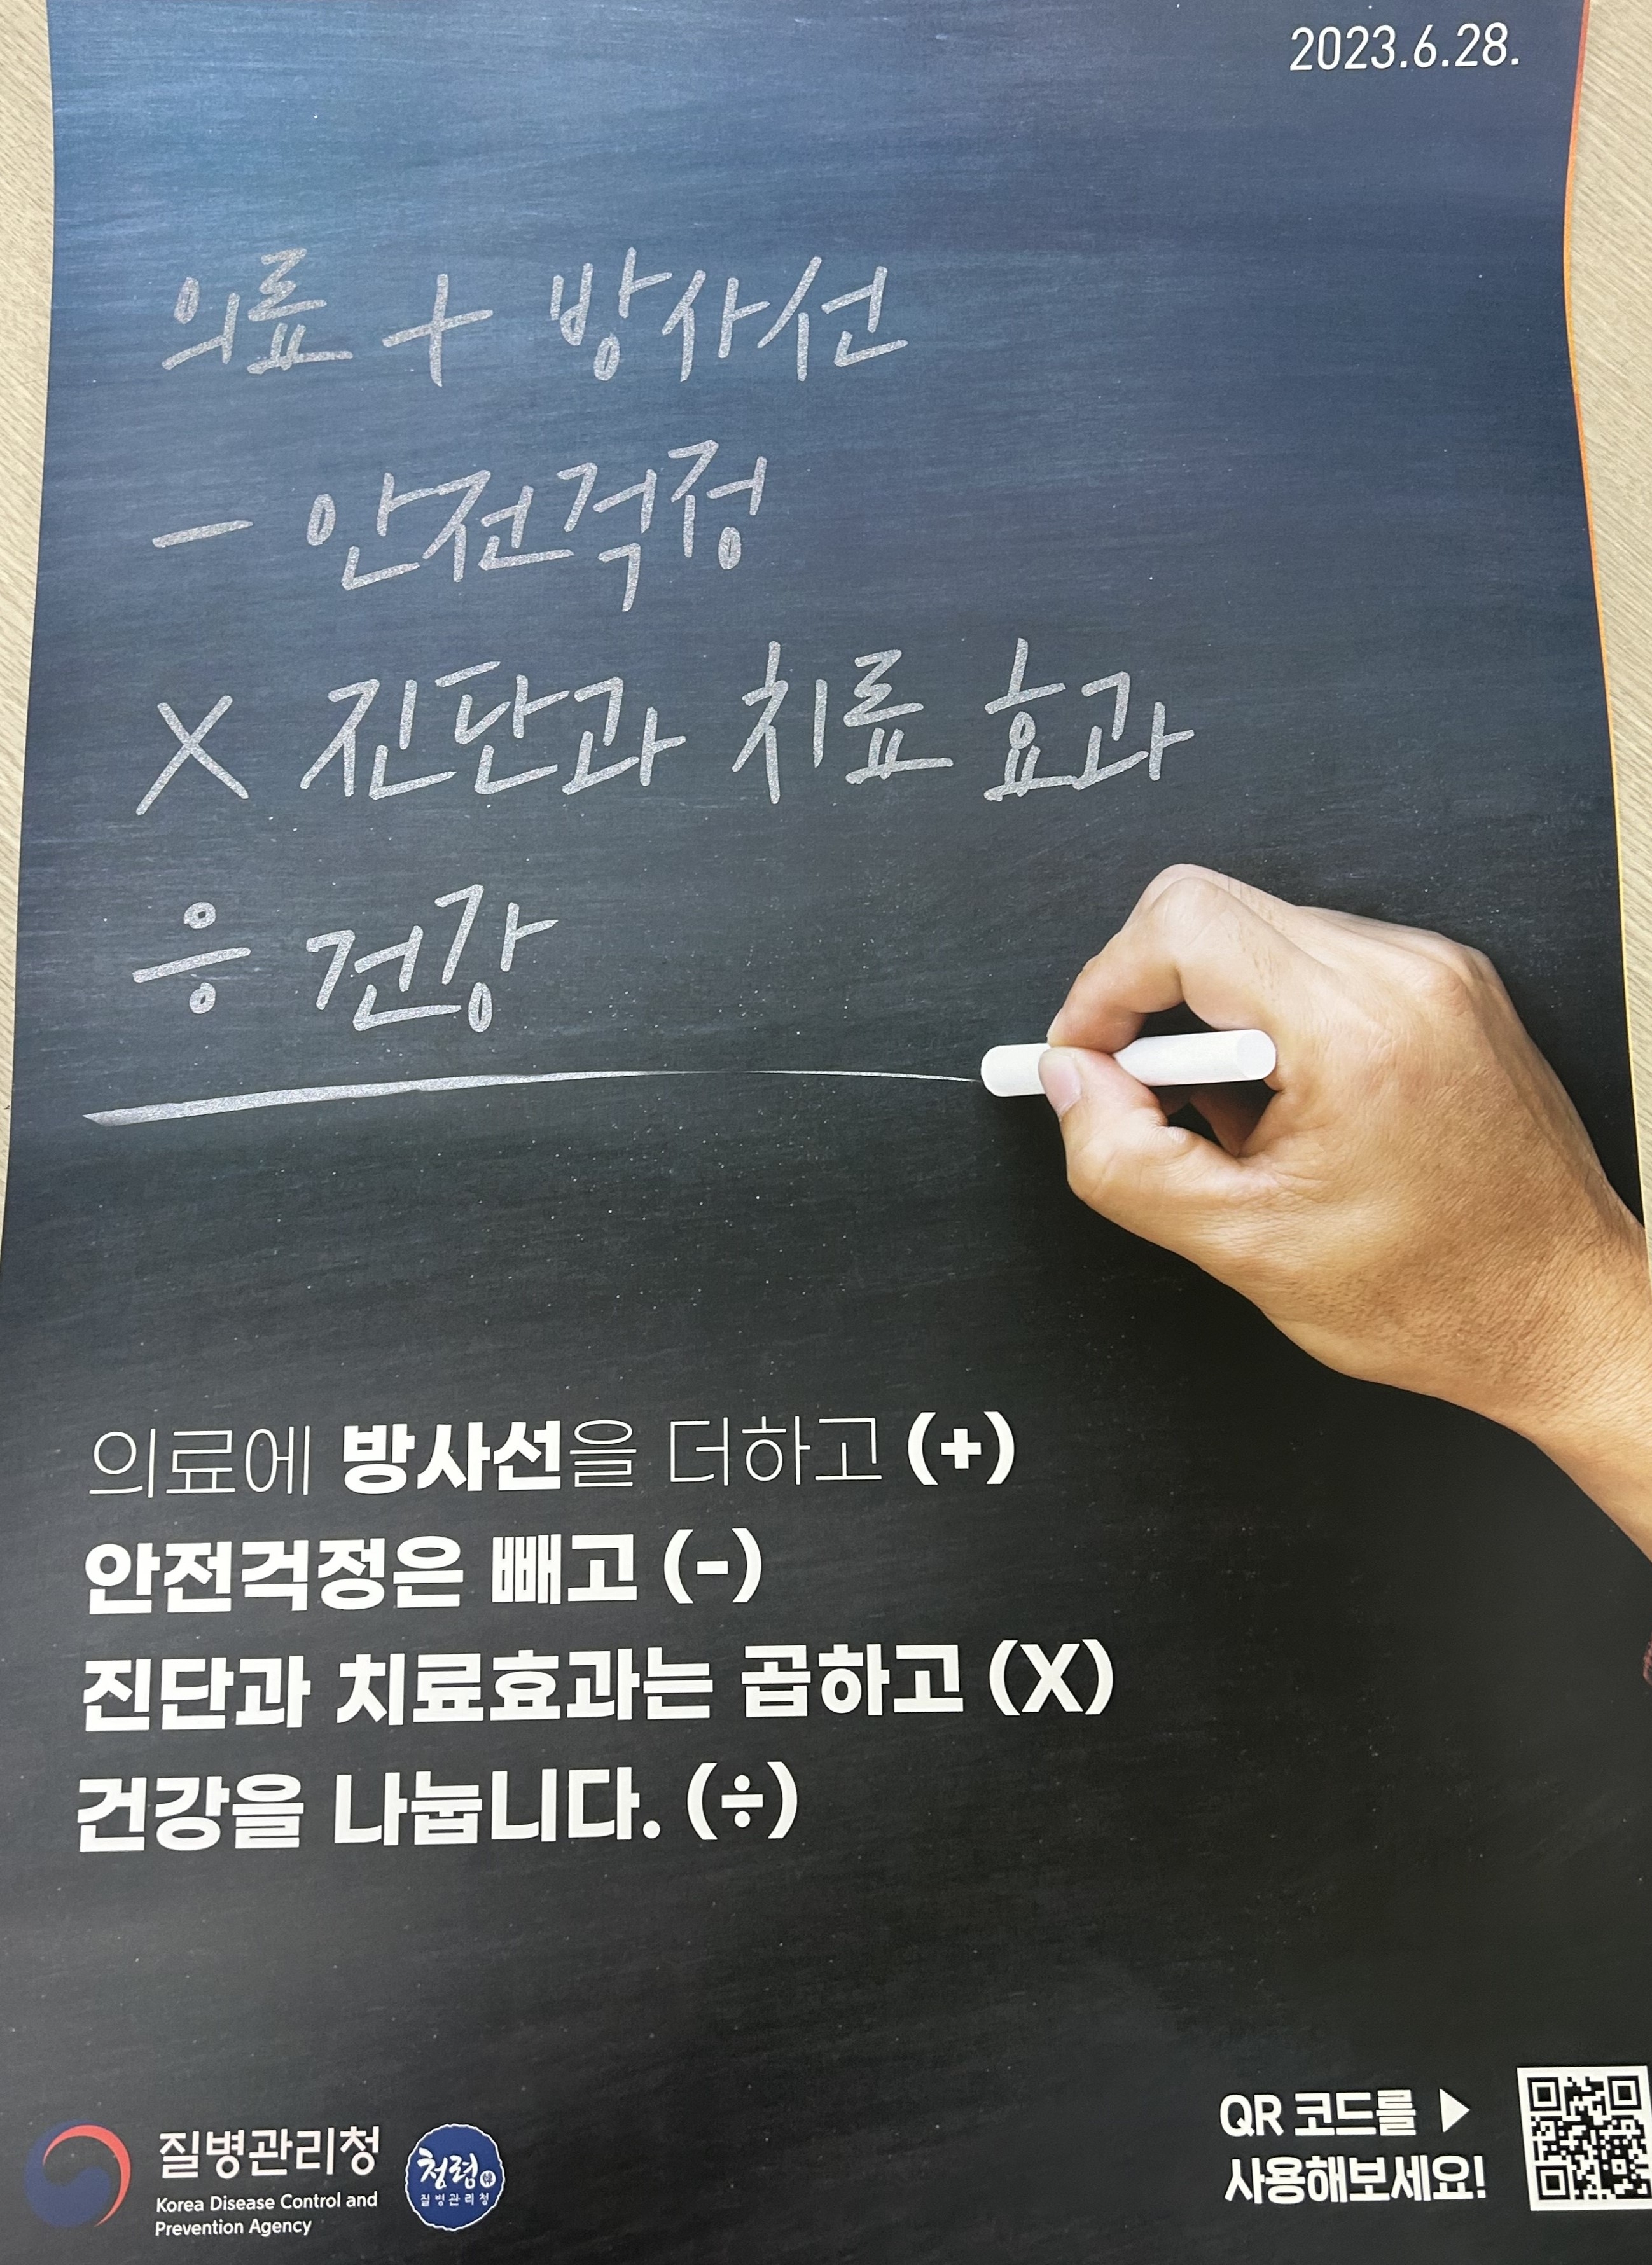 2023.6.28.
의료 + 방사선
- 안전걱정
X 진단과 치료 효과
÷ 건강
의료에 방사선을 더하고 (+)
안전걱정은 빼고 (-)
진단과 치료효과는 곱하고 (X)
건강을 나눕니다. (÷)
질병관리청
Korea Disease Control and
Prevention Agency
청렴
질병관리청
QR 코드를 ▶
사용해보세요!